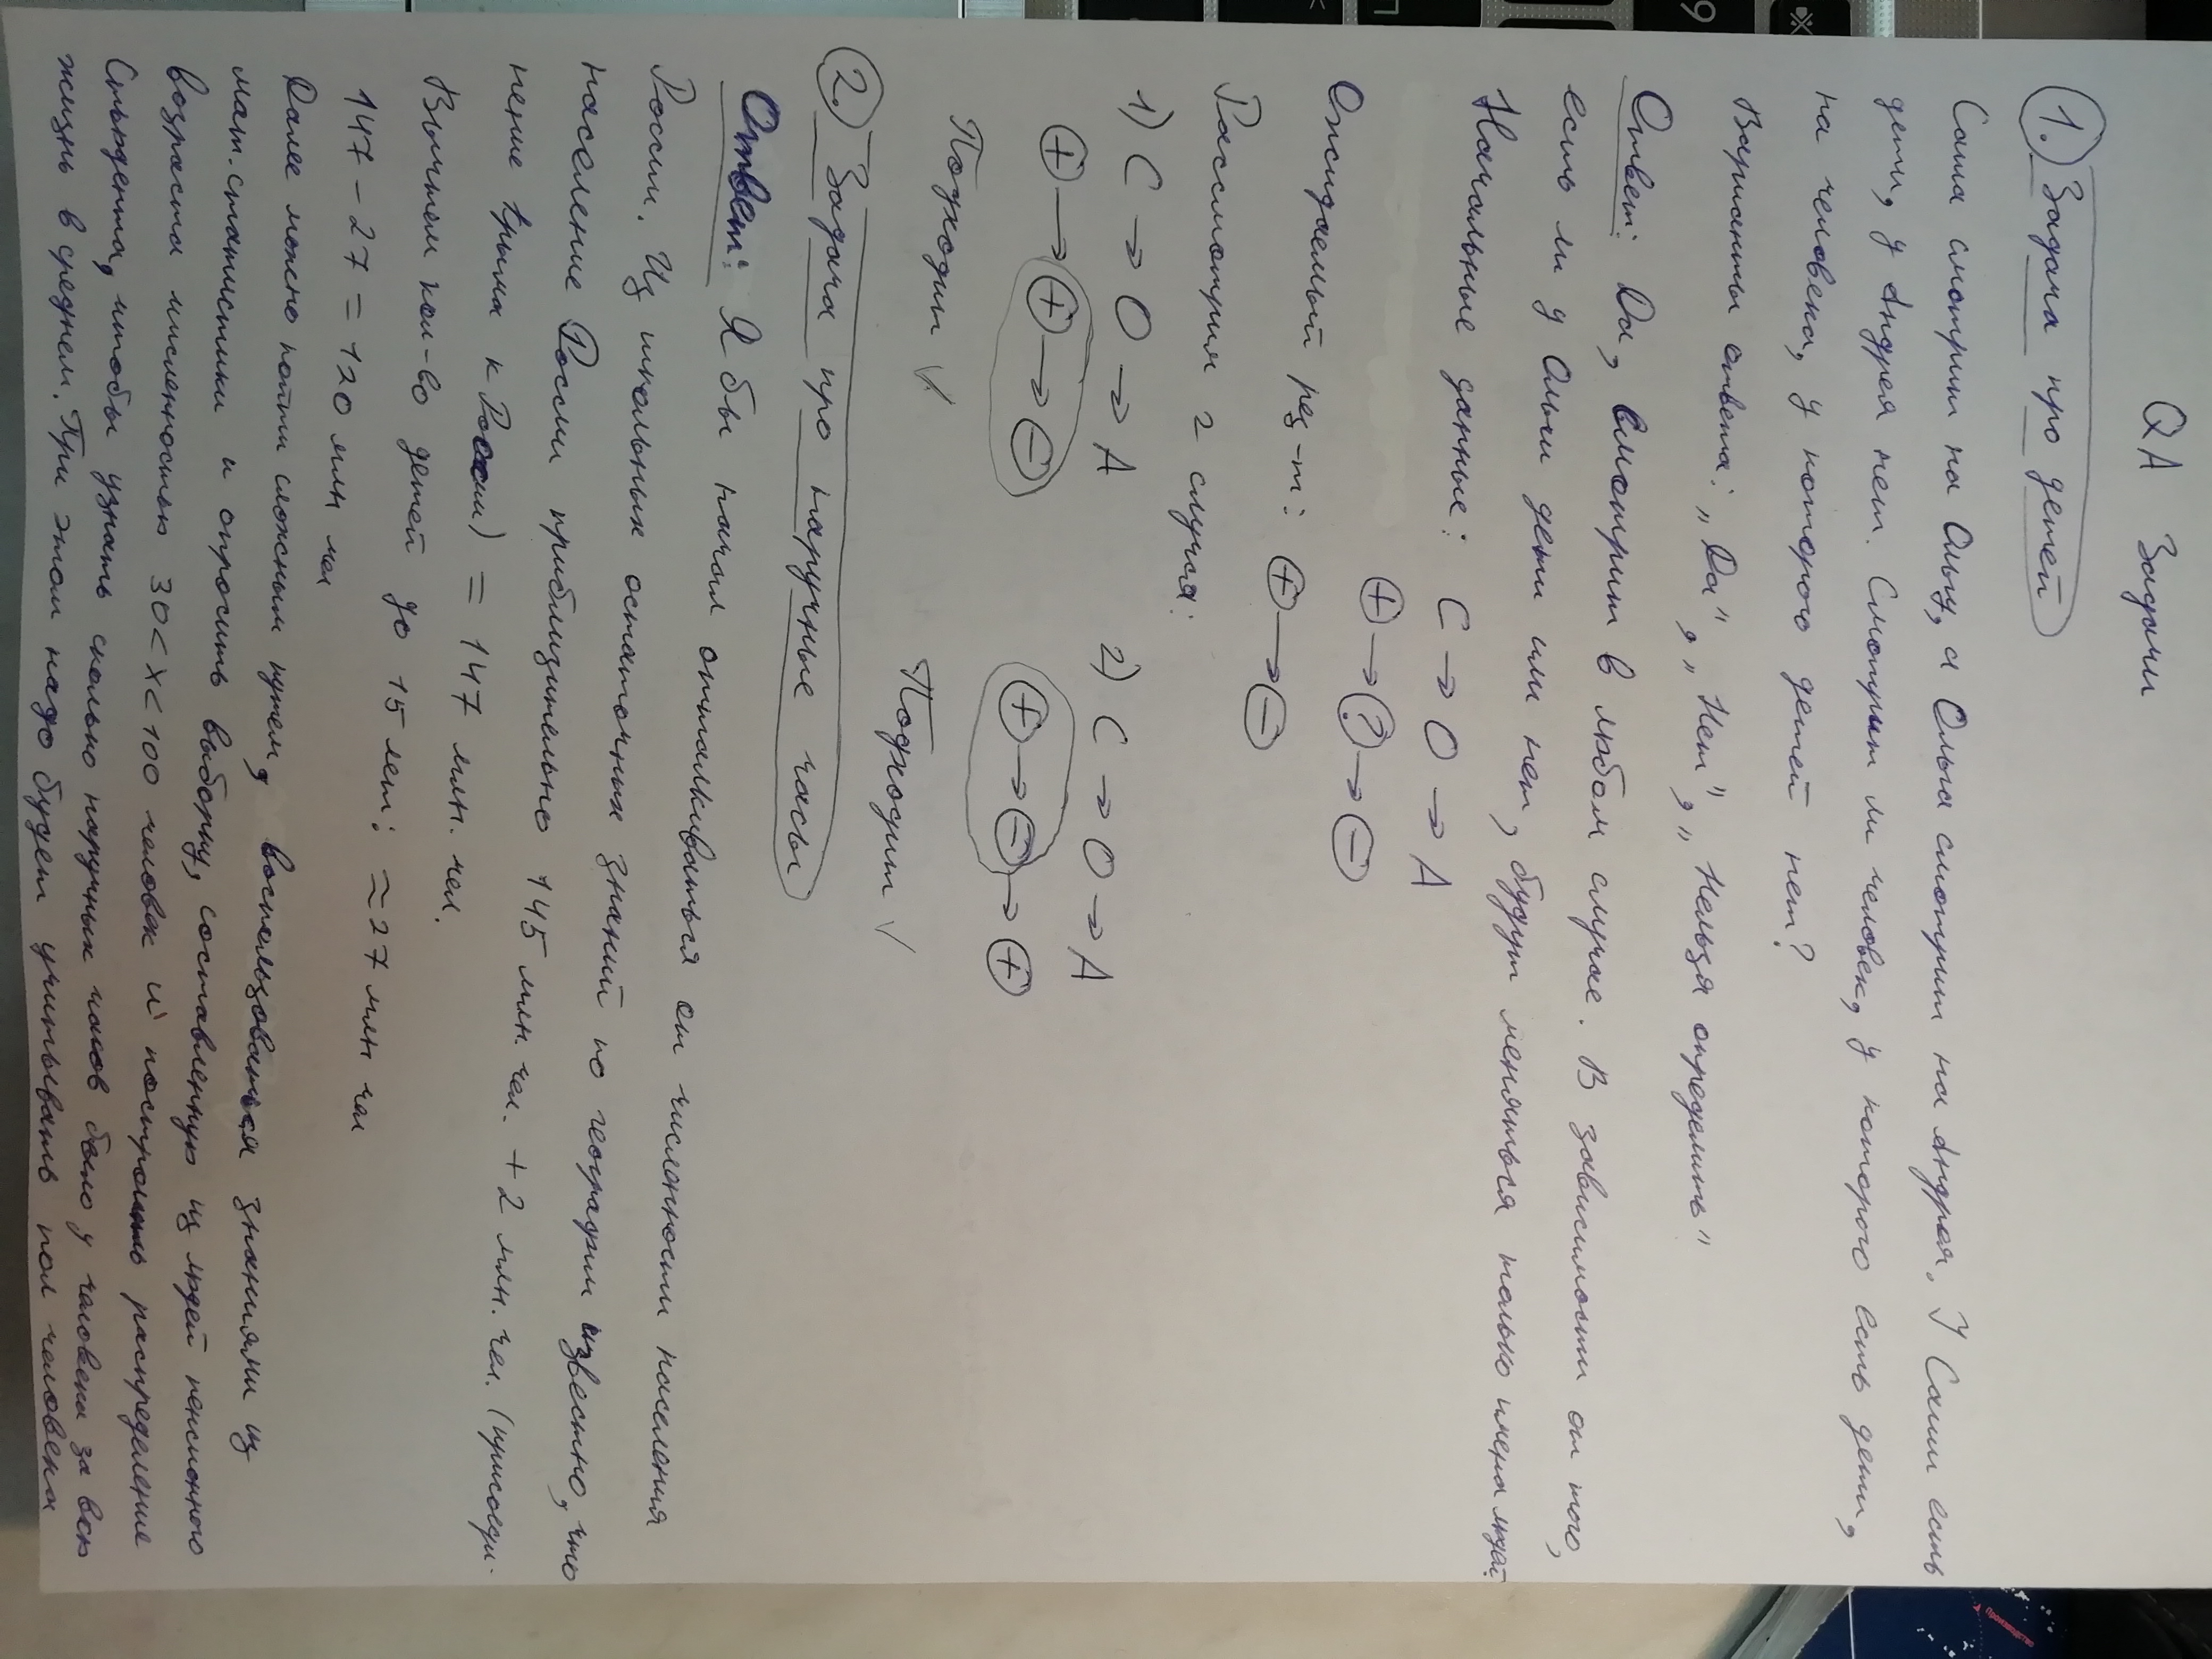 QA Задачи
1. Задача про детей
Саша смотрит на Ольгу, а Ольга смотрит на Андрея. У Саши есть
дети, у Андрея нет. Смотрит ли человек, у которого есть дети,
на человека, у которого детей нет?
Варианты ответа: „Да", „Нет", „Нельзя определить"
Ответ: Да, смотрит в любом случае. В зависимости от того,
есть ли у Ольги дети или нет, будут меняться только имена людей.
Начальные данные: С → О → А
+ → ? → −
Ожидаемый рез-т: + → −
Рассмотрим 2 случая:
1) С → О → А
+ → + → −
Подходит ✓
2) С → О → А
+ → − → +
Подходит ✓
2. Задача про наручные часы
Ответ: Я бы начал отталкиваться от численности населения
России. Из школьных остаточных знаний по географии известно, что
население России приблизительно 145 млн. чел. + 2 млн. чел. (присоеди-
нение Крыма к России) = 147 млн. чел.
Вычтем кол-во детей до 15 лет: ≈ 27 млн чел
147 − 27 = 120 млн чел
Далее можно пойти сложным путем, воспользоваться знаниями из
мат. статистики и опросить выборку, составленную из людей пенсионного
возраста численностью 30 < x < 100 человек и построить распределение
Стьюдента, чтобы узнать сколько наручных часов было у человека за всю
жизнь в среднем. При этом надо будет учитывать пол человека
9
Производство